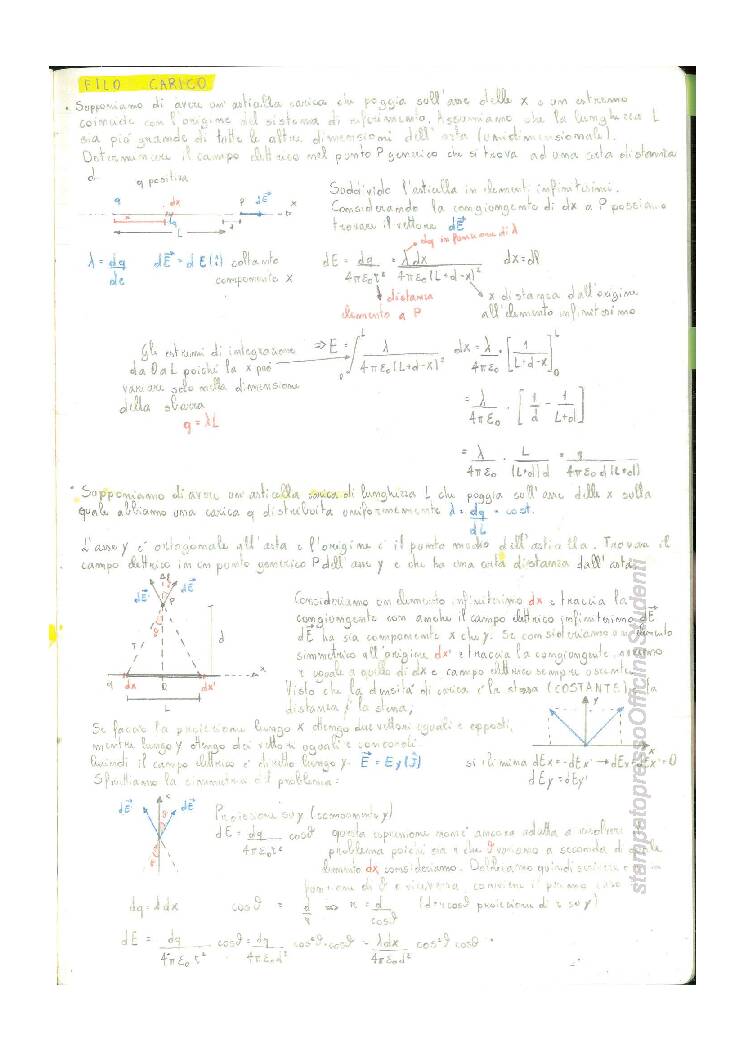 FILO CARICO
• Supponiamo di avere un'asticella carica che poggia sull'asse delle x e un estremo
coincide con l'origine del sistema di riferimento. Assumiamo che la lunghezza L
sia più grande di tutte le altre dimensioni dell'asta (unidimensionale).
Determinare il campo elettrico nel punto P generico che si trova ad una certa distanza
d
q positiva
q dx P dE x
L d
Suddivido l'asticella in elementi infinitesimi.
Considerando la congiungente di dx a P possiamo
trovare il vettore dE
dq in funzione di λ
λ = dq dE = dE(i) soltanto componente x
dE = dq / 4πε₀r² = λdx / 4πε₀(L+d-x)² dx = dl
distanza elemento a P
x distanza dall'origine
all'elemento infinitesimo
Gli estremi di integrazione
da 0 a L poiché la x può
variare solo nella dimensione
della sbarra
q = λL
⇒ E = ∫₀ᴸ λ / 4πε₀(L+d-x)² dx = λ / 4πε₀ · [1 / L+d-x]₀ᴸ
= λ / 4πε₀ · [1/d - 1/L+d]
= λ / 4πε₀ · L / (L+d)d = q / 4πε₀d(L+d)
• Supponiamo di avere un'asticella carica di lunghezza L che poggia sull'asse delle x sulla
quale abbiamo una carica q distribuita uniformemente λ = dq/dL = cost.
L'asse y è ortogonale all'asta e l'origine è il punto medio dell'asticella. Trovare il
campo elettrico in un punto generico P dell'asse y e che ha una certa distanza dall'asta.
dE' dE
P
r d
q dx O dx' x
L
Consideriamo un elemento infinitesimo dx e traccia la
congiungente con anche il campo elettrico infinitesimo dE
dE ha sia componente x che y. Se consideriamo un elemento
simmetrico all'origine dx' e traccia la congiungente, avremo
r uguale a quello di dx e campo elettrico sempre uscente.
Visto che la densità di carica è la stessa (COSTANTE), la
distanza è la stessa,
Se faccio la proiezione lungo x ottengo due vettori uguali e opposti,
mentre lungo y ottengo dei vettori uguali e concordi.
Quindi il campo elettrico è diretto lungo y. E = Ey(j)
Sfruttiamo la simmetria del problema:
y
x
si elimina dEx = -dEx' → dEx + dEx' = 0
dEy = dEy'
dE' dE
Proiezione su y (componente y)
dE = dq / 4πε₀r² cosθ questa espressione non è ancora adatta a risolvere
problema poiché sia r che θ variano a seconda di quale
elemento dx consideriamo. Dobbiamo quindi scrivere
funzione di θ e viceversa, conviene il primo caso
dq = λdx cosθ = d/r ⇒ r = d/cosθ (d = r cosθ proiezione di r su y)
dE = dq / 4πε₀r² cosθ = dq / 4πε₀d² cos²θ · cosθ = λdx / 4πε₀d² cos²θ cosθ =
stampatopressoOfficineStudenti